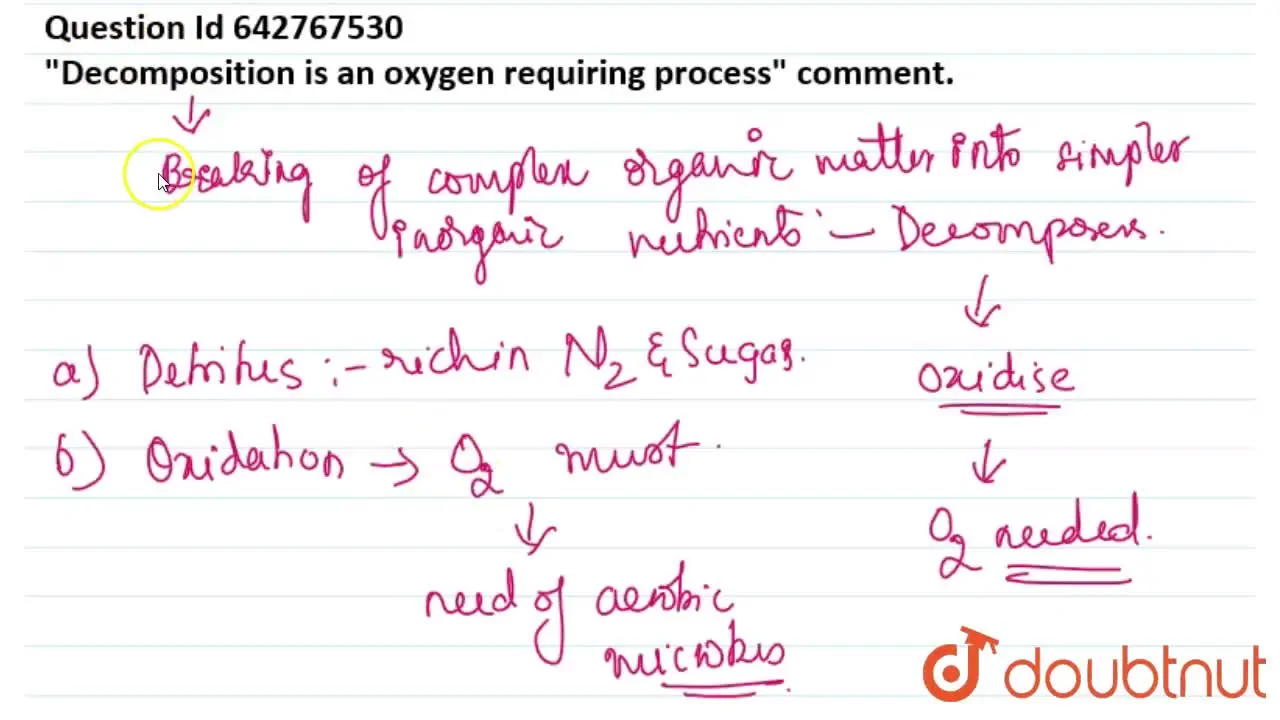 Question Id 642767530
"Decomposition is an oxygen requiring process" comment.
Breaking of complex organic matter into simpler
inorganic nutrients - Decomposers.
a) Detritus :- rich in N2 & Sugar.
Oxidise
b) Oxidation → O2 must.
O2 needed.
need of aerobic
microbes
doubtnut